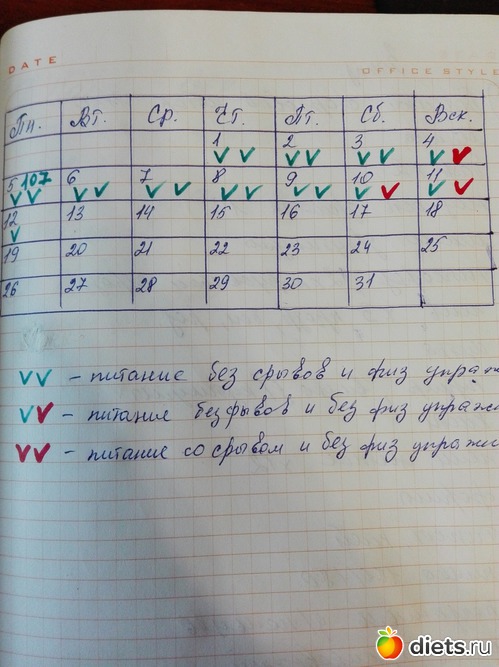 DATE
OFFICE STYLE
Пн. Вт. Ср. Чт. Пт. Сб. Вск.
1 2 3 4
5 107 6 7 8 9 10 11
12 13 14 15 16 17 18
19 20 21 22 23 24 25
26 27 28 29 30 31
- питание без срывов и физ упраж
- питание без срывов и без физ упраж
- питание со срывом и без физ упраж
diets.ru